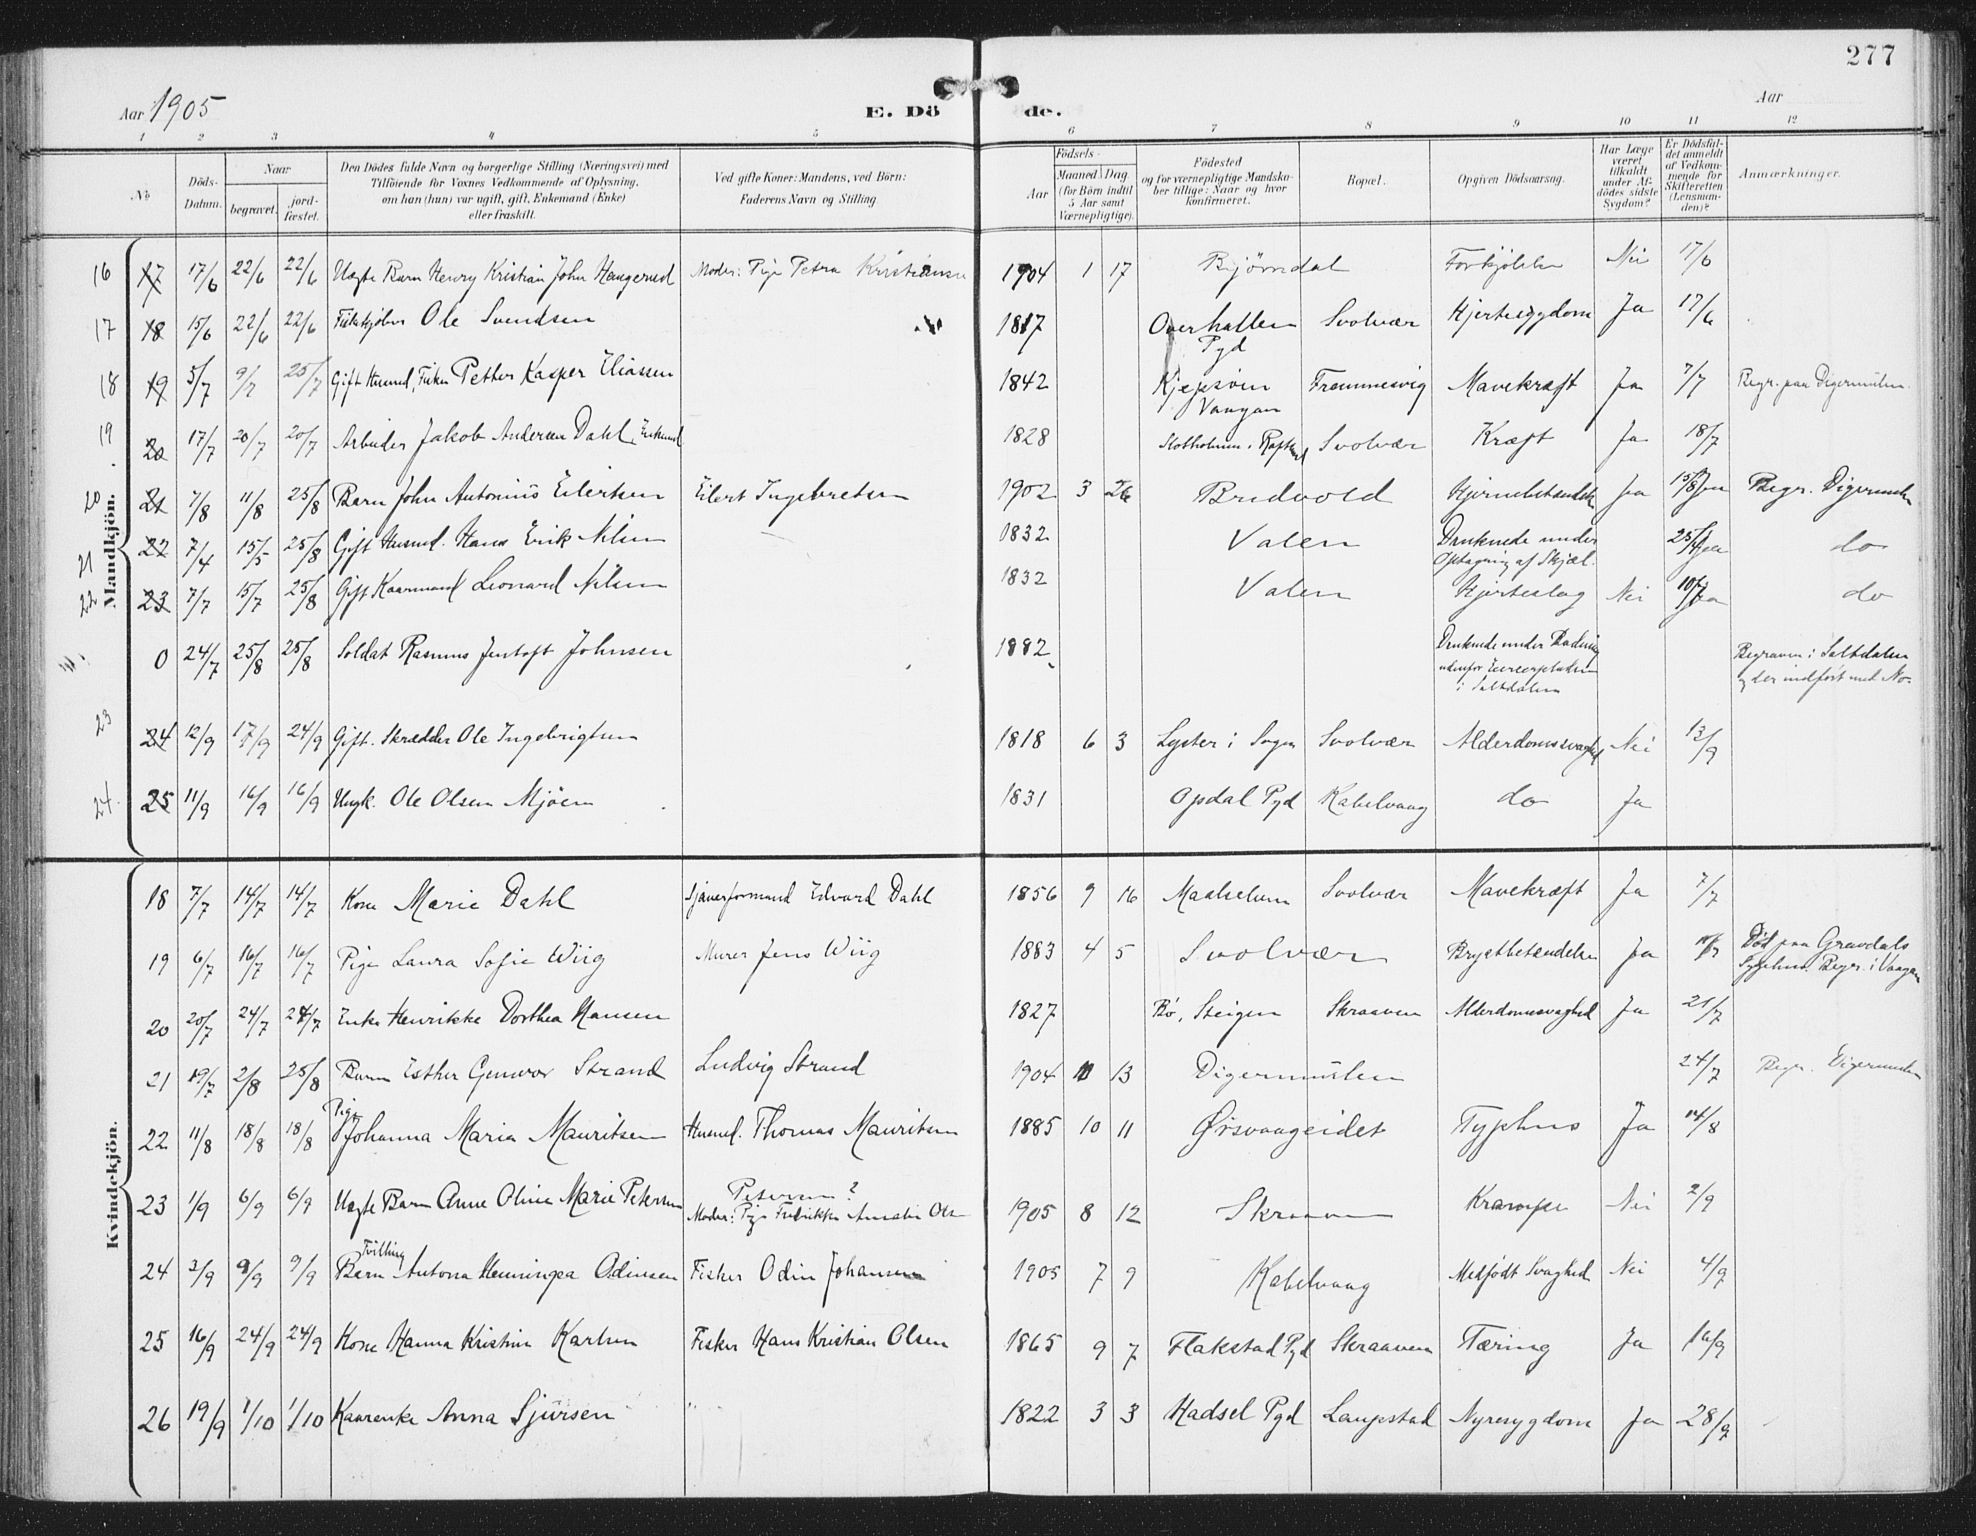 277
Aar 1905
E. Döde.
Aar
1 2 3 4 5 6 7 8 9 10 11 12
No
Döds-Datum.
Naar
begravet.
jord-fæstet.
Den Dödes fulde Navn og borgerlige Stilling (Næringsvei) med
Tilföiende för Voxnes Vedkommende af Oplysning,
om han (hun) var ugift, gift, Enkemand (Enke)
eller fraskilt.
Ved gifte Koner: Mandens, ved Börn:
Faderens Navn og Stilling.
Födsels-
Aar
Maaned. Dag.
(for Börn indtil
5 Aar samt
Værnepligtige).
Födested
og for værnepligtige Mandska-
ber tillige: Naar og hvor
konfirmeret.
Bopæl.
Opgiven Dödsaarsag.
Har Læge
været
tilkaldt
under Af-
dödes sidste
Sygdom?
Er Dödsfal-
det anmeldt
af Vedkom-
mende for
Skifteretten
(Lensman-
den)?
Anmærkninger.
Mandkjön.
16 17 17/6 22/6 22/6 Uægte Barn Henry Kristian John Moder: Pige Petra Kristiansen 1904 1 17 Bjørndal Forkjølelse Nei 17/6
17 18 15/6 22/6 22/6 Ole Svendsen 1817 Overhallen Pgd Svolvær Hjertesygdom Ja 17/6
18 19 5/7 9/7 25/7 Gift Husmd, Fisker Petter Kasper Eliassen 1842 Vaagan Mavekræft Ja 7/7 Begr. paa Digermulen
19 20 17/7 20/7 20/7 Arbeider Jakob Andersen Dahl, Enkemd 1828 Svolvær Kræft Ja 18/7
20 21 7/8 11/8 25/8 Barn John Antonius Eilertsen Eilert Ingebretsen 1902 3 26 Bredvold Hjernebetændelse Ja 15/8 Begr. Digermulen
21 22 7/4 15/5 25/8 Gift Husmd. Hans Erik Nilsen 1832 Valen Druknede under
Optagning af Skjæl. 25/4 do
22 23 7/7 15/7 25/8 Gift Kaarmand Leonard Nilsen 1832 Valen Hjerteslag Nei 10/7 Ja do
0 24/7 25/8 25/8 Soldat Rasmus Jentoft Johnsen 1882 Druknede under Badning
udenfor
i Saltdalen Begraven i Saltdalen
og der indført med No.
23 24 12/9 17/9 24/9 Gift. Skrædder Ole Ingebrigtsen 1818 6 3 Lyster i Sogn Svolvær Alderdomssvaghed Nei 13/9
24 25 11/9 16/9 16/9 Ungk. Ole Olsen Mjøen 1831 Opdal Pgd Kabelvaag do Ja
Kvindekjön.
18 7/7 14/7 14/7 Kone Marie Dahl Sjauerformand Edvard Dahl 1856 9 16 Maalselven Svolvær Mavekræft Ja 7/7
19 6/7 16/7 16/7 Pige Laura Sofie Wiig Murer Jens Wiig 1883 4 5 Svolvær Brystbetændelse Ja Død paa Gravdals
Sygehus. Begr. i Vaagan
20 20/7 24/7 24/7 Enke Henrikke Dorthea Hansen 1827 Bø, Steigen Skraaven Alderdomssvaghed Ja 21/7
21 19/7 2/8 25/8 Barn Esther Gunvor Strand Ludvig Strand 1904 10 13 Digermulen 24/7 Begr. Digermulen
22 11/8 18/8 18/8 Pige Johanna Maria Mauritsen Husmd. Thomas Mauritsen 1885 10 11 Ørsvaageidet Typhus Ja 14/8
23 1/9 6/9 6/9 Uægte Barn Anne Oline Marie Petersen Petersen?
Moder: Pige Fredrikke Amalie Olsen 1905 8 12 Skraaven Krampe Nei 2/9
24 3/9 9/9 9/9 Tvilling
Barn Antona Henningea Odinsen Fisker Odin Johansen 1905 7 9 Kabelvaag Medfødt Svaghed Nei 4/9
25 16/9 24/9 24/9 Kone Hanna Kristine Karlsen Fisker Hans Kristian Olsen 1865 9 7 Flakstad Pgd Skraaven Tæring Ja 16/9
26 19/9 1/10 1/10 Kaarenke Anna Sjursen " 1822 3 3 Hadsel Pgd Laupstad Nyresygdom Ja 28/9